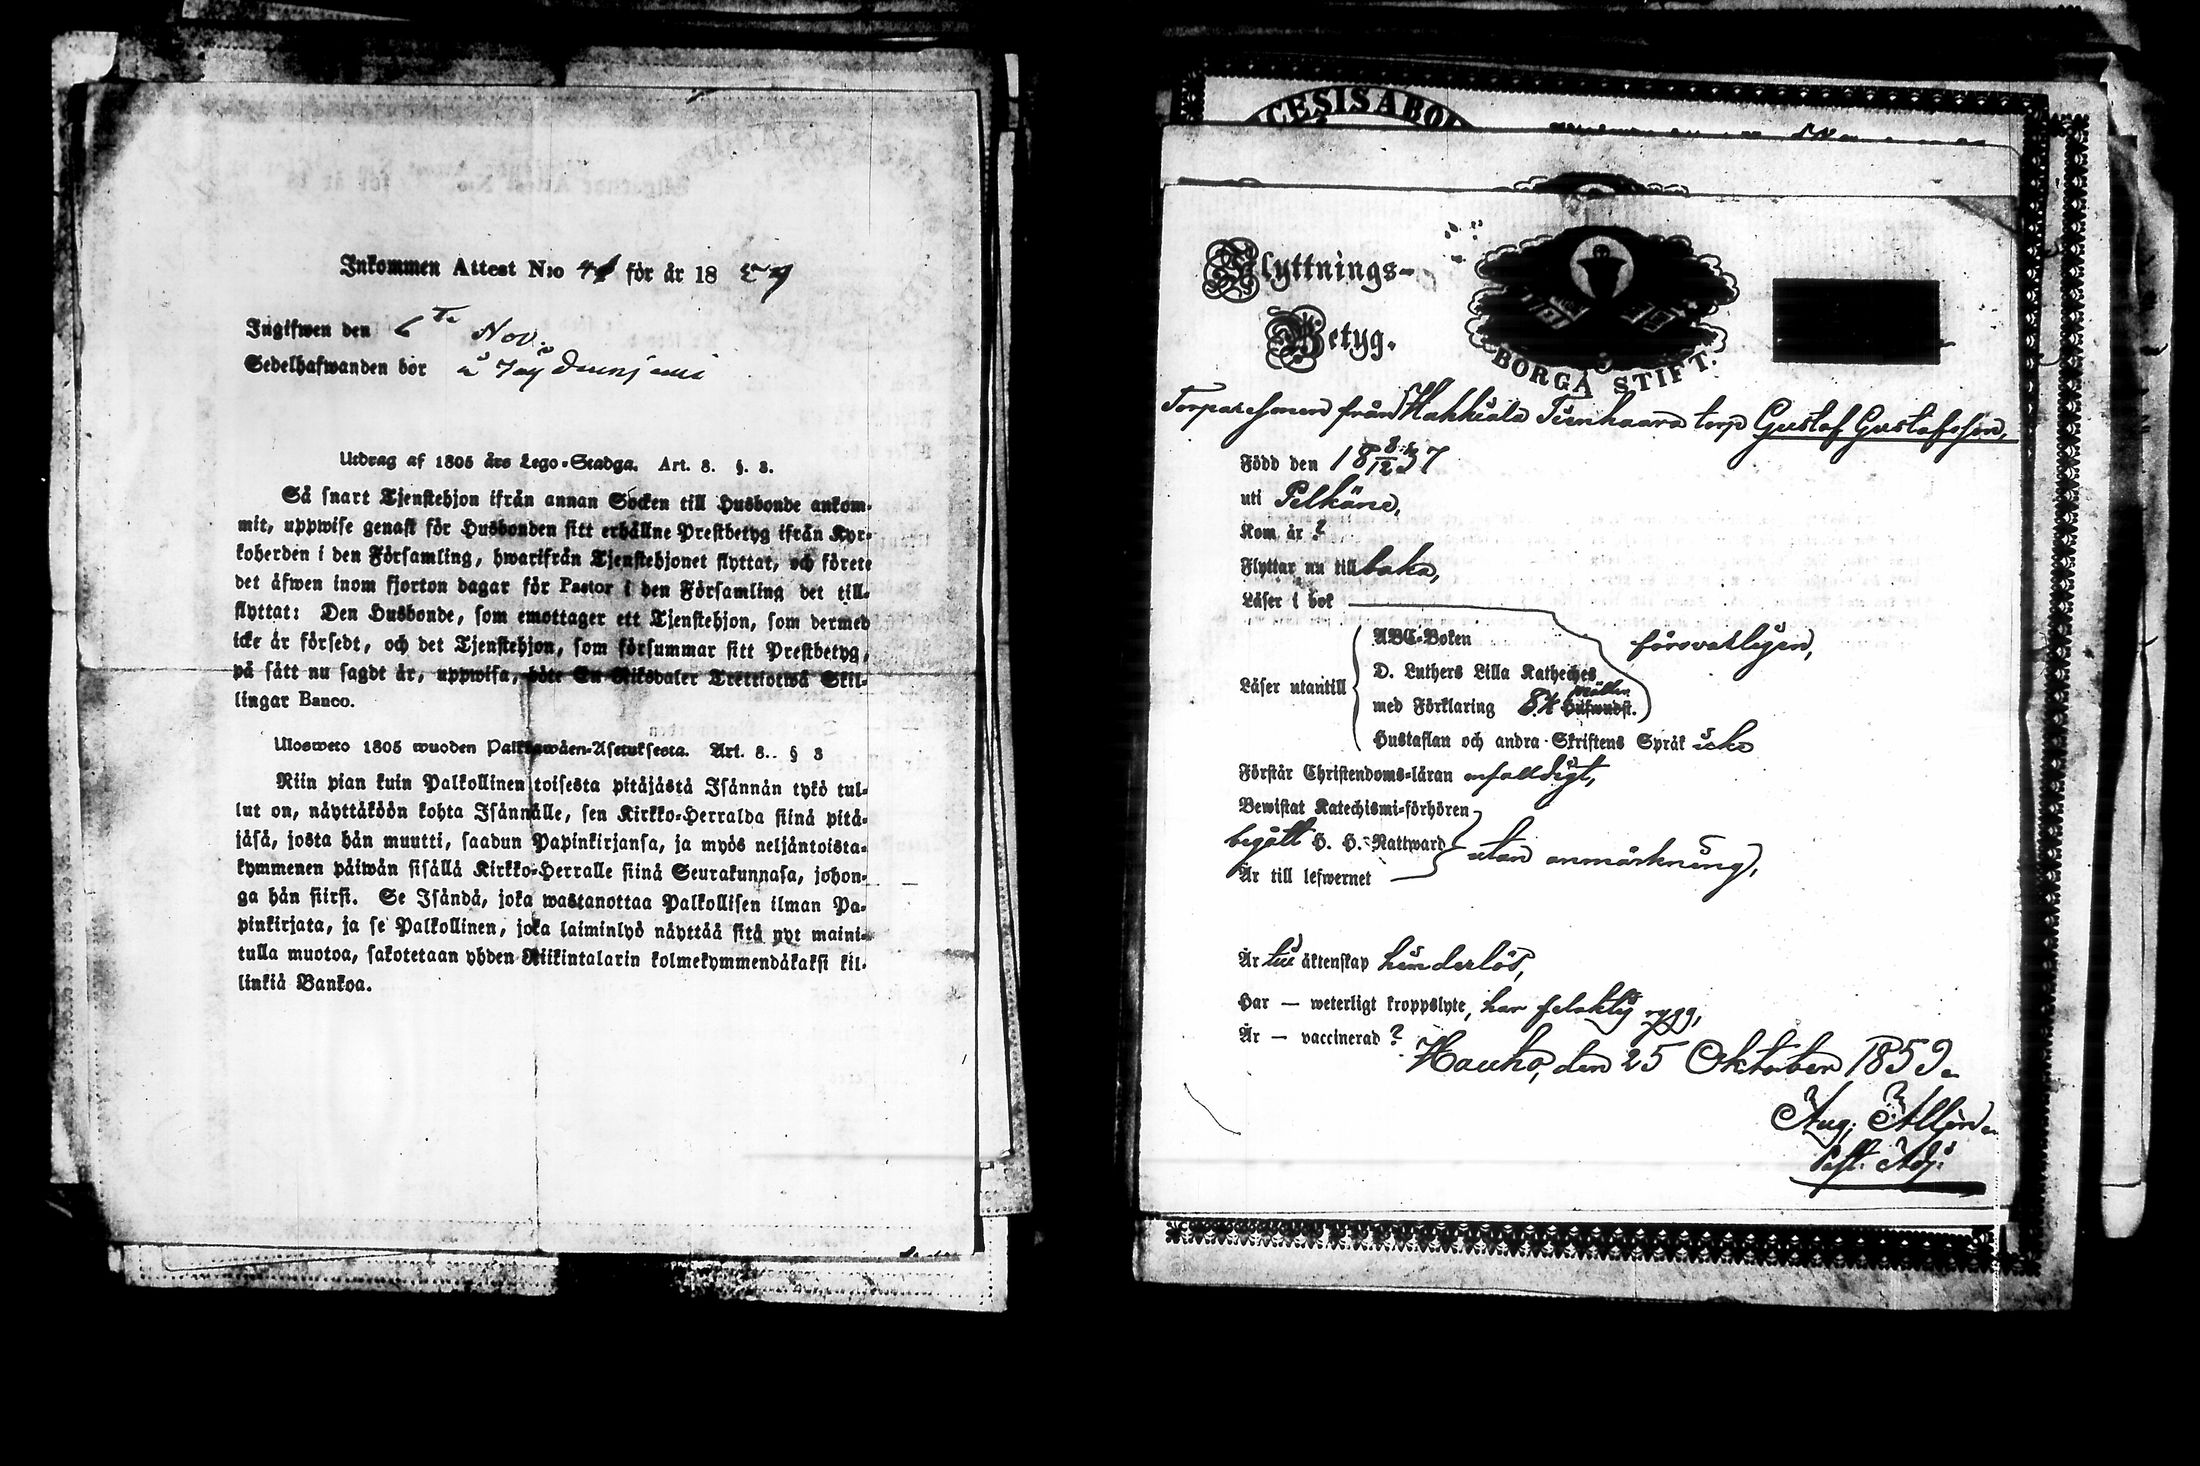 Inkommen Attest N:o 41 för år 1859
Ingifwen den 6te Nov.
Sedelhafwanden bor
Utdrag af 1805 års Lego-Stadga. Art. 8. §. 3.
Så snart Tjenstehjon ifrån annan Socken till Husbonde ankom-
mit, uppwise genast för Husbonden sitt erhållne Prestbetyg ifrån Kyr-
koherden i den Församling, hwarifrån Tjenstehjonet flyttat, och förete
det äfwen inom fjorton dagar för Pastor i den Församling det till-
flyttat: Den Husbonde, som emottager ett Tjenstehjon, som dermed
icke är försedt, och det Tjenstehjon, som försummar sitt Prestbetyg,
på sätt nu sagdt är, uppwisa, böte En Riksdaler Trettiotwå Skil-
lingar Banco.
Ulosweto 1805 wuoden Palkkawäen-Asetuksesta. Art. 8. § 3
Niin pian kuin Palkollinen toisesta pitäjästä Isännän tykö tul-
lut on, näyttäköön kohta Isännälle, sen Kirkko-Herralda siinä pitä-
jäsä, josta hän muutti, saadun Papinkirjansa, ja myös neljäntoista-
kymmenen päiwän sisällä Kirkko-Herralle siinä Seurakunnasa, johon-
ga hän siirsi. Se Isändä, joka wastanottaa Palkollisen ilman Pa-
pinkirjata, ja se Palkollinen, joka laiminlyö näyttää sitä nyt maini-
tulla muotoa, sakotetaan yhden Riikintalarin kolmekymmendäkaksi kil-
linkiä Bankoa.
CESIS ABO
Flyttnings-
Betyg.
BORGÅ STIFT.
Torparesonen från Hahkiala Tiinhaara torp Gustaf Gustafsson,
Född den 18 8/12 37
uti Pelkäne,
Kom år ?
Flyttar nu till baka,
Läser i bok
ABC-Boken
försvarligen,
D. Luthers Lilla Kateches
Läser utantill
med Förklaring Hufwudst.
Hustaflan och andra Skriftens Språk icke
Förstår Christendoms-läran enfalldigt,
Bewistat Katechismi-förhören
begått H. H. Nattward
utan anmärkning,
Är till lefwernet
Är till äktenskap hinderlös,
Har — weterligt kroppslyte, har felaktig rygg,
Är — vaccinerad ?
Hauho, den 25 Oktober 1859.
Aug. Allén
Past. Adj.